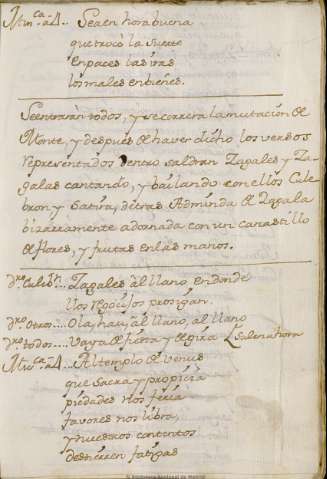 Mus.ca a 4... Sea en hora buena
que trocò la Suerte
En paces las iras
los males en bienes.
Se entrarán todos, y se correrà la mutacion de
Monte, y despues de haver dicho los versos
representados dentro saldran Zagales y Za-
galas cantando, y bailando con ellos Cule-
bron y Satira, detras Adminda de Zagala
bizarramente adornada con un canastillo
de flores, y frutas en las manos.
Dro Culebn... Zagales àl llano, en donde
los regocijos prosigan.
Dro Otros.... Ola, hau, àl llano, al llano
Dro todos.... Vaya de fiesta y de gira Salen ahora
Mus.ca a 4... Al templo de Venus
que Sacra y propicia
piedades nos feria
favores nos libra,
y nuestros contentos
destierren fatigas
Biblioteca Nacional de